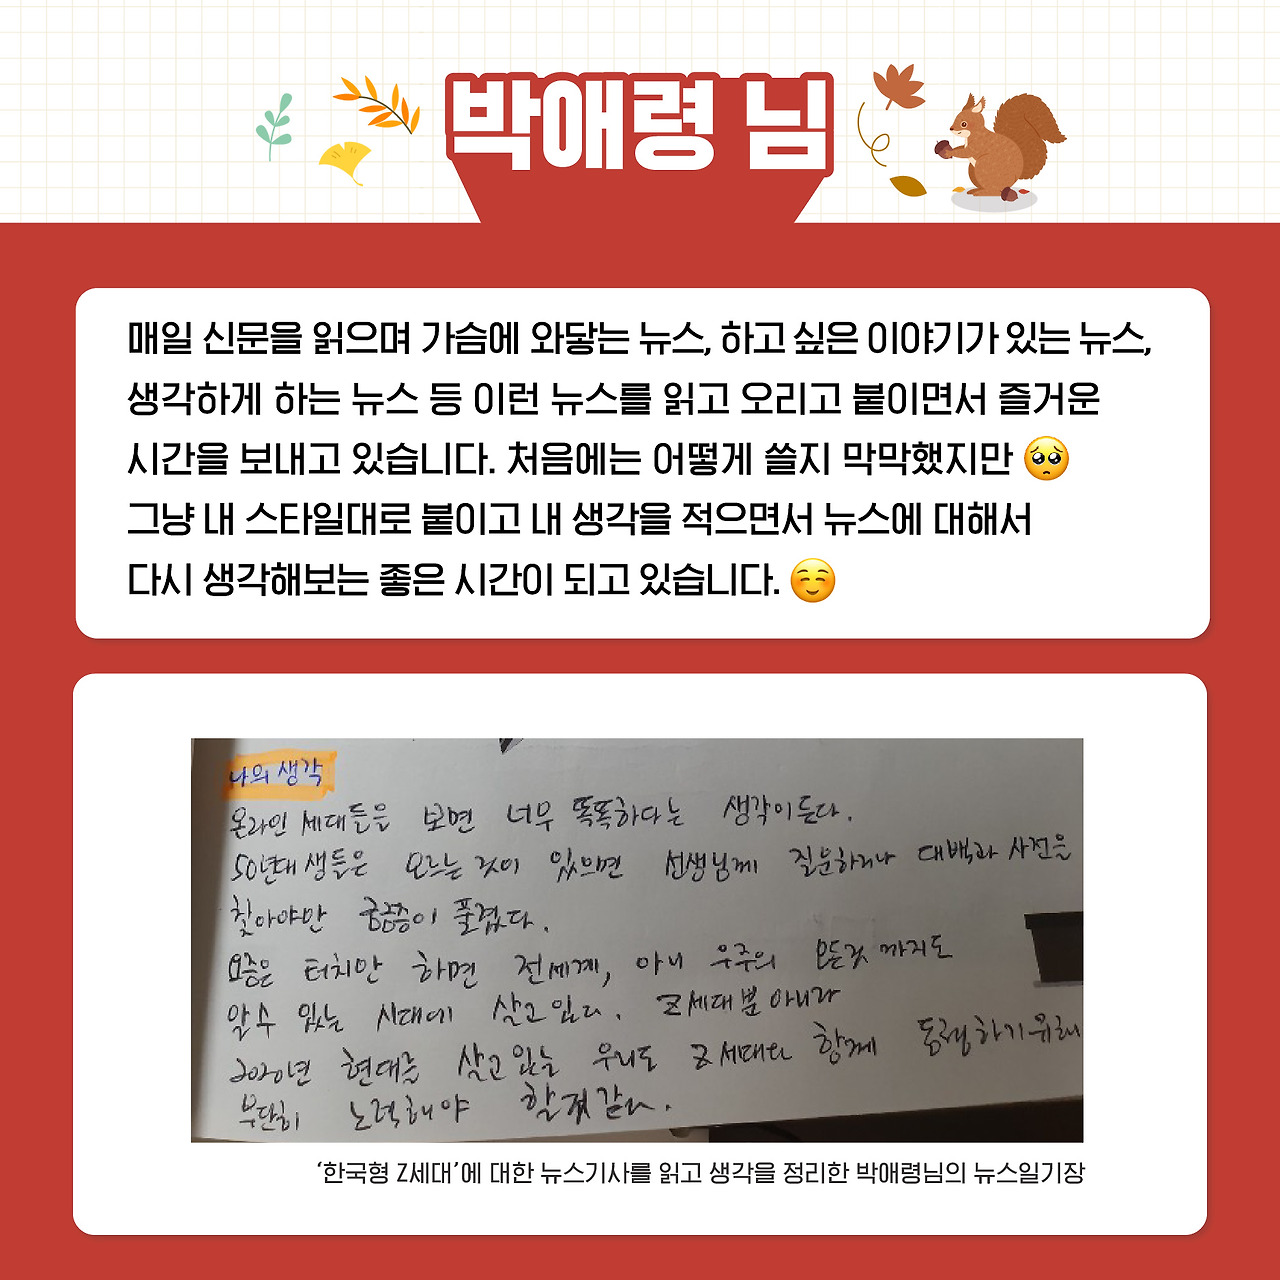 박애령 님
매일 신문을 읽으며 가슴에 와닿는 뉴스, 하고 싶은 이야기가 있는 뉴스,
생각하게 하는 뉴스 등 이런 뉴스를 읽고 오리고 붙이면서 즐거운
시간을 보내고 있습니다. 처음에는 어떻게 쓸지 막막했지만 🥺
그냥 내 스타일대로 붙이고 내 생각을 적으면서 뉴스에 대해서
다시 생각해보는 좋은 시간이 되고 있습니다. ☺️
나의 생각
온라인 세대들을 보면 너무 똑똑하다는 생각이 든다.
50년대 생들은 모르는 것이 있으면 선생님께 질문하거나 대백과 사전을
찾아야만 궁금증이 풀렸다.
요즘은 터치만 하면 전세계, 아니 우주의 모든것 까지도
알 수 있는 시대에 살고 있다. Z세대뿐 아니라
2020년 현대를 살고 있는 우리도 Z세대와 함께 동행하기 위해
부단히 노력해야 할 것 같다.
‘한국형 Z세대’에 대한 뉴스기사를 읽고 생각을 정리한 박애령님의 뉴스일기장